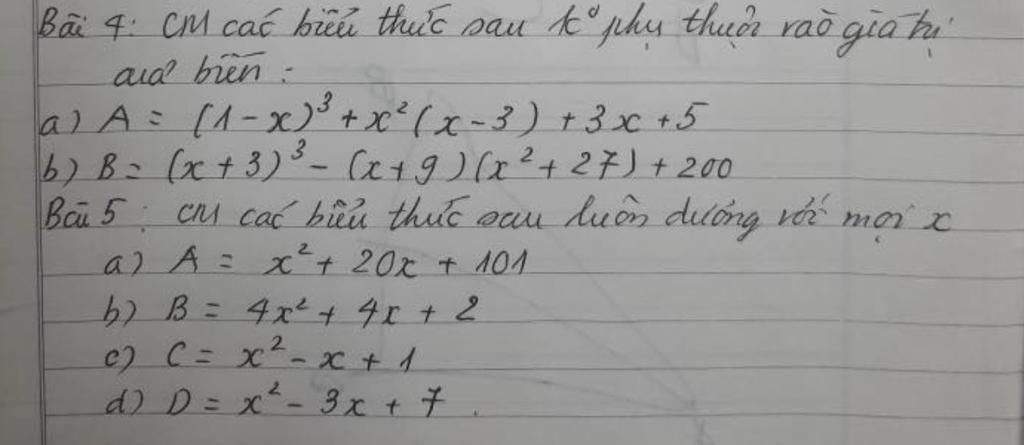 Bài 4: CM các biểu thức sau kº phụ thuộc vào giá trị
của biến :
a) A = (1-x)³ + x²(x-3) + 3x + 5
b) B = (x+3)³ - (x+9)(x²+27) + 200
Bài 5 : CM các biểu thức sau luôn dương với mọi x
a) A = x² + 20x + 101
b) B = 4x² + 4x + 2
c) C = x² - x + 1
d) D = x² - 3x + 7 .